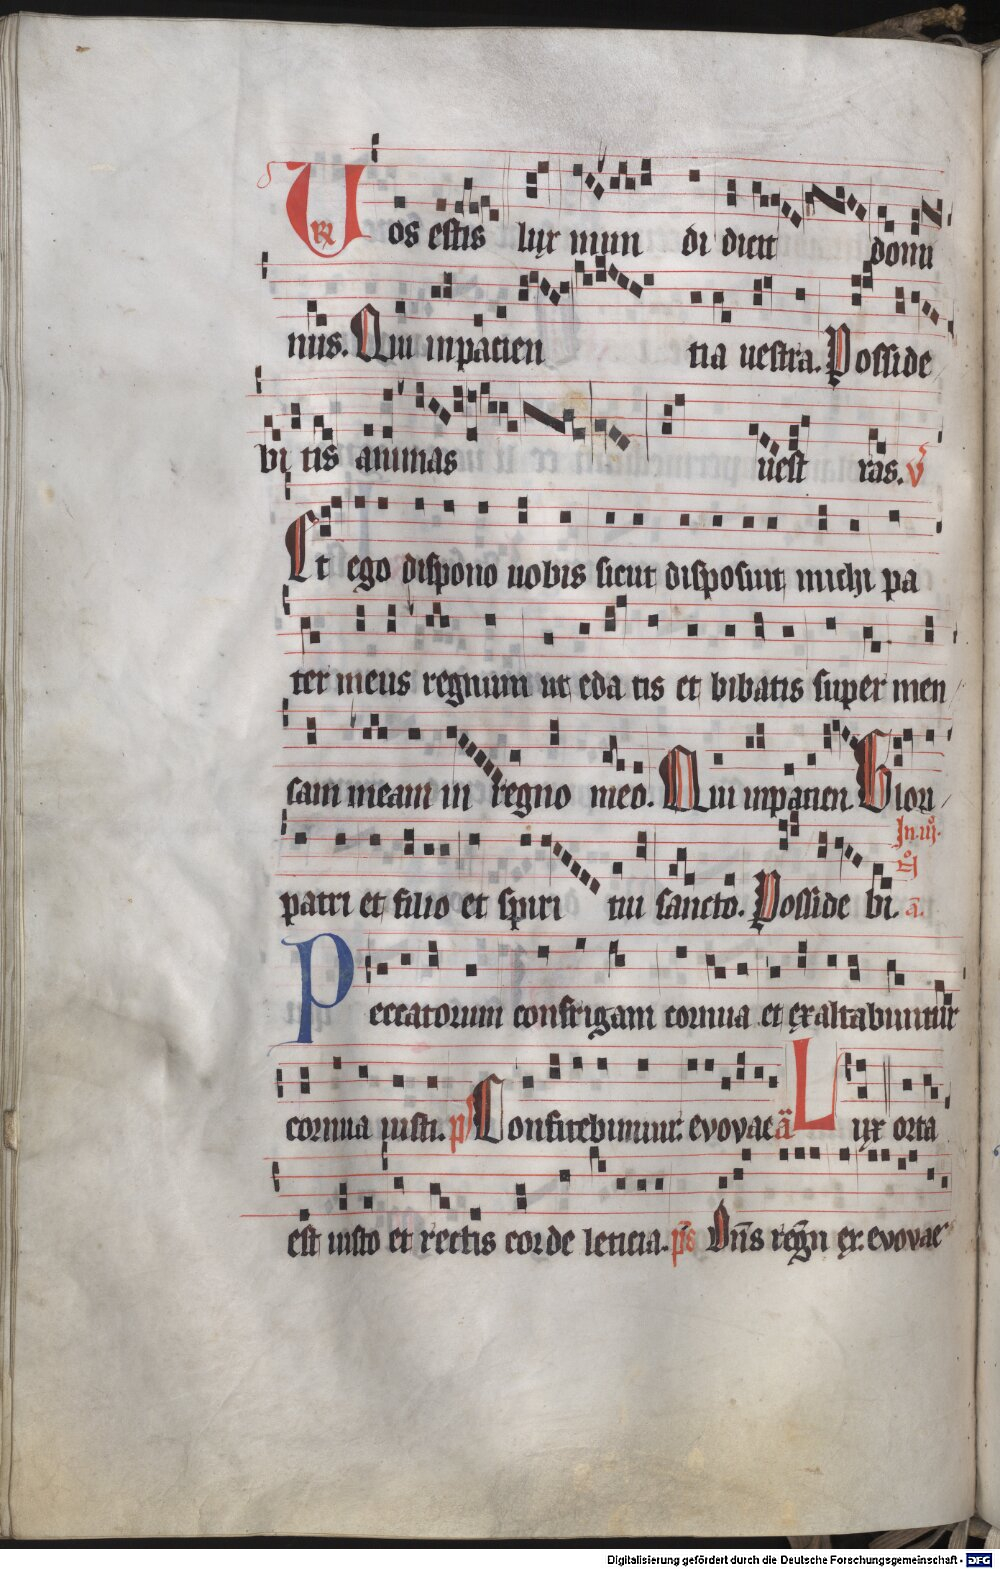 Vos estis lux mun di dicit domi
R
nus. Qui inpacien tia uestra. Posside
bi tis animas uest ras. v
Et ego dispono uobis sicut disposuit michi pa
ter meus regnum ut eda tis et bibatis super men
sam meam in regno meo. Qui inpacien. Glori
In.iij.
patri et filio et spiri tui sancto. Posside bi. a.
Peccatorum confrigam cornua et exaltabuntur
cornua iusti. p Confitebimur. evovae a Lux orta
est iusto et rectis corde leticia. ps Dn̄s regn̄ ex. evovae
Digitalisierung gefördert durch die Deutsche Forschungsgemeinschaft - DFG